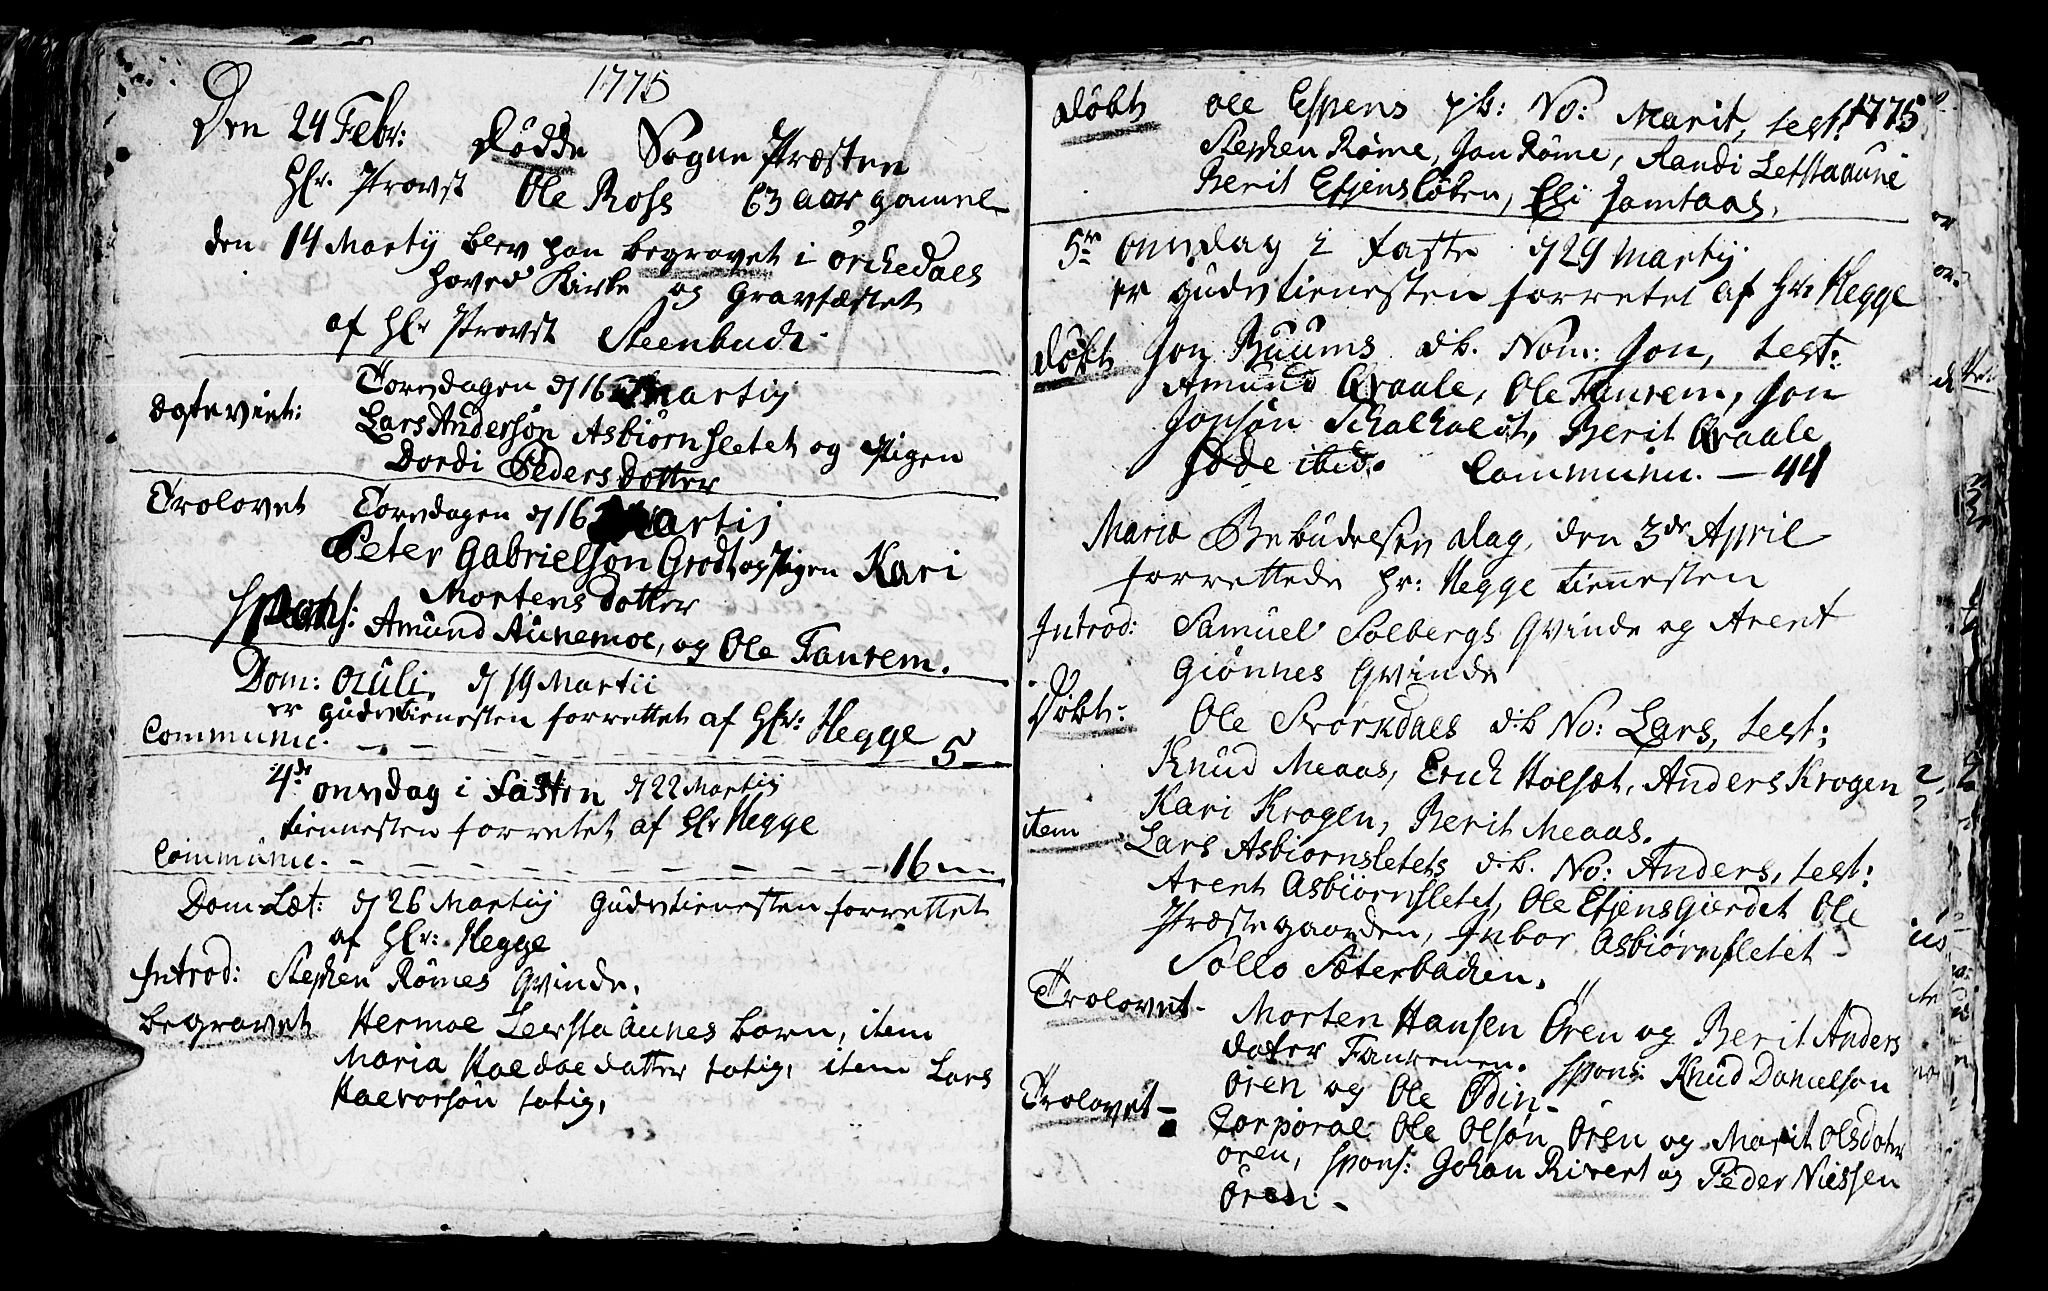 1775
Den 24 Febr: Dødde Sogne Præsten
Hr. Provst Ole Ross 63 aar gammel
den 14 Martij blev han begravet i Orchedals
Hoved Kirke og Gravfæstet
af Hr Provst Steenbuch
Torsdagen d 16 Martij
Ægteviet: Lars Andersøn Asbiørnsletet og Pigen
Dordi Peders Dotter
Trolovet Torsdagen d 16 Martij
Peter Gabrielson Grodt og Pigen Kari
Mortens Dotter
Spons: Amund Aunemoe, og Ole Fanrem.
Dom: Oculi. d 19 Martii
er Gudstienesten forrettet af Hr: Hegge
Communic. - - - - - - 5
4de onsdag i Fasten d 22 Martij
tiennesten forretet af Hr Hegge
Communic. - - - - - - - 16
Dom Læt: d 26 Martij Gudstienesten forrettet
af Hr: Hegge
Introd: Stephen Rømes Qvinde.
begravet Hermoe Leerstaaunes barn, item
Maria Haldoedatter fatig, item Lars
Halvorsøn fatig,
døbt Ole Espens p:b: No: Marit, test: 1775
Stephen Røme, Jon Røme, Randi Letstaaune
Berit Evjensløken, Eli Jamtaas.
5te onsdag i Faste d 29 Martij
er gudstienesten forretet af Hr: Hegge
døbt Jon Buums d:b. Nom: Jon, test:
Amund Qvaale, Ole Fanrem, Jon
Jonsøn Schalhaldt, Berit Qvaale
ibid. Communic. - 44
Maria Bebudelses dag, den 3de April
forrettede hr: Hegge tiennesten
Introd: Samuel Solbergs Qvinde og Arent
Giønnes Qvinde
Døbt: Ole Svorkdals d:b No: Lars, test:
Knud Meaas, Erich Holsæt, Anders Krogen
Kari Krogen, Berit Meaas.
item Lars Asbiørnsletets d:b. No: Anders, test:
Arent Asbiørnsletet, Ole Evjensgierdet Ole
Præstegaarden, Inbor Asbiørnsletet
Sollo Sæterbachen.
Trolovet - Morten Hansen Øren og Berit Anders
dater Fanremen. Spons: Knud Danielsøn
Øren og Ole Odin-
Trolovet - Corporal Ole Olsøn Øren og Marit Olsdater
øren, spons: Johan Rivert og Peder Nielsen
Øren -